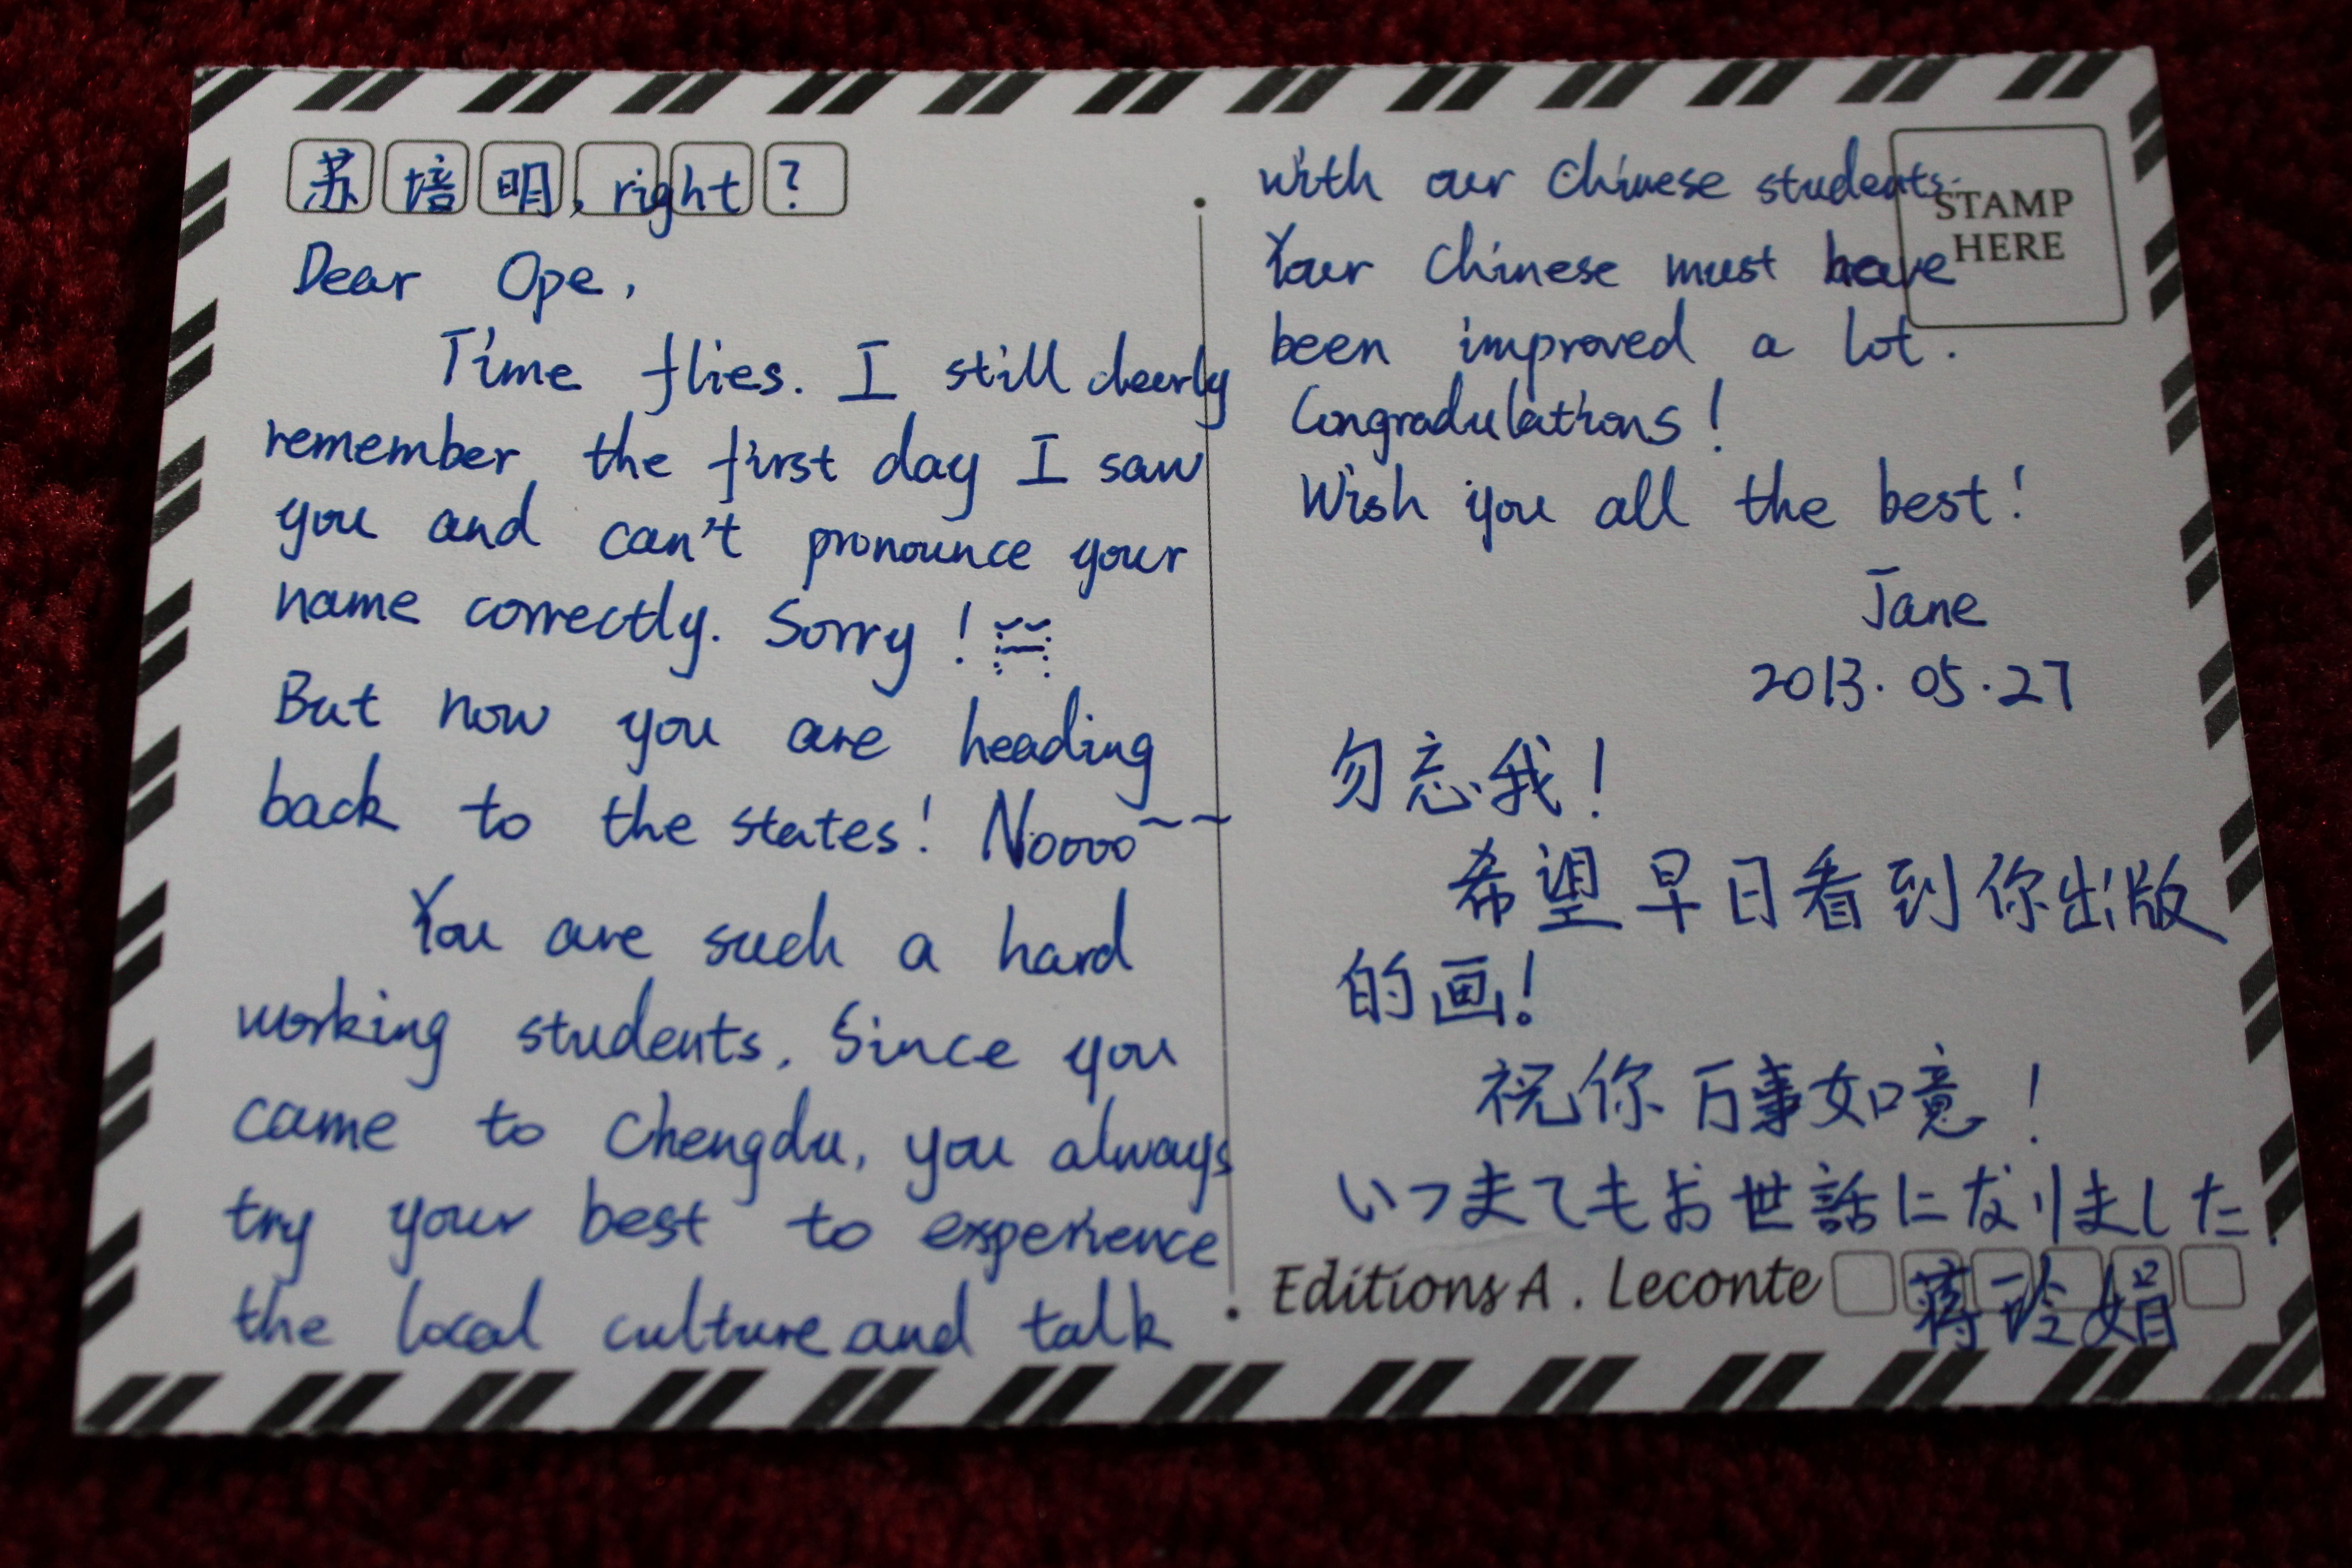 苏培明, right?
Dear Ope,
Time flies. I still clearly
remember the first day I saw
you and can't pronounce your
name correctly. Sorry!
But now you are heading
back to the states! Noooo~~
You are such a hard
working students. Since you
came to Chengdu, you always
try your best to experience
the local culture and talk
with our Chinese students.
Your Chinese must have
been improved a lot.
Congradulations!
Wish you all the best!
Jane
2013.05.27
勿忘我!
希望早日看到你出版
的画!
祝你万事如意!
いつまてもお世話になりました!
蒋玲娟
STAMP
HERE
Editions A. Leconte